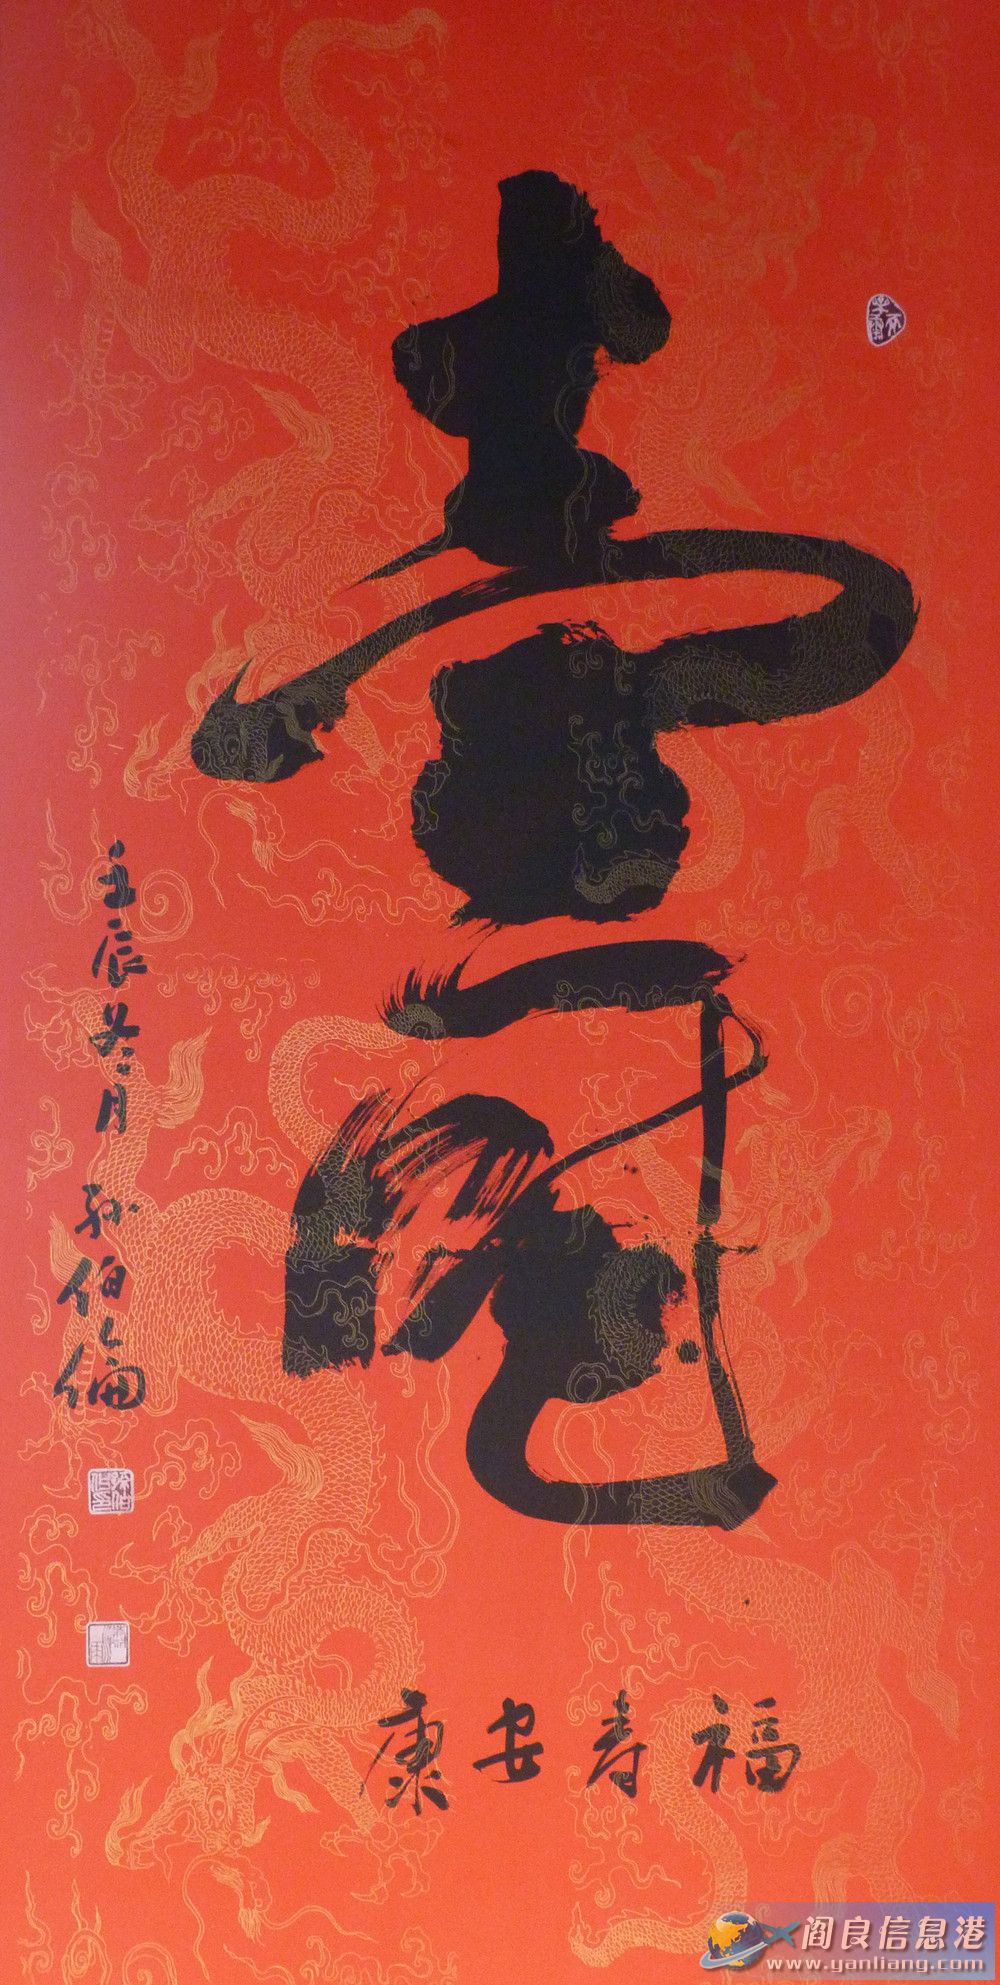 壽
福寿安康
壬辰冬月
孙伯倫
阎良信息港
www.yanliang.com